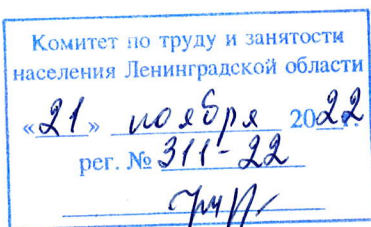 Комитет по труду и занятости
населения Ленинградской области
«21» ноября 2022г.
рег. № 311-22